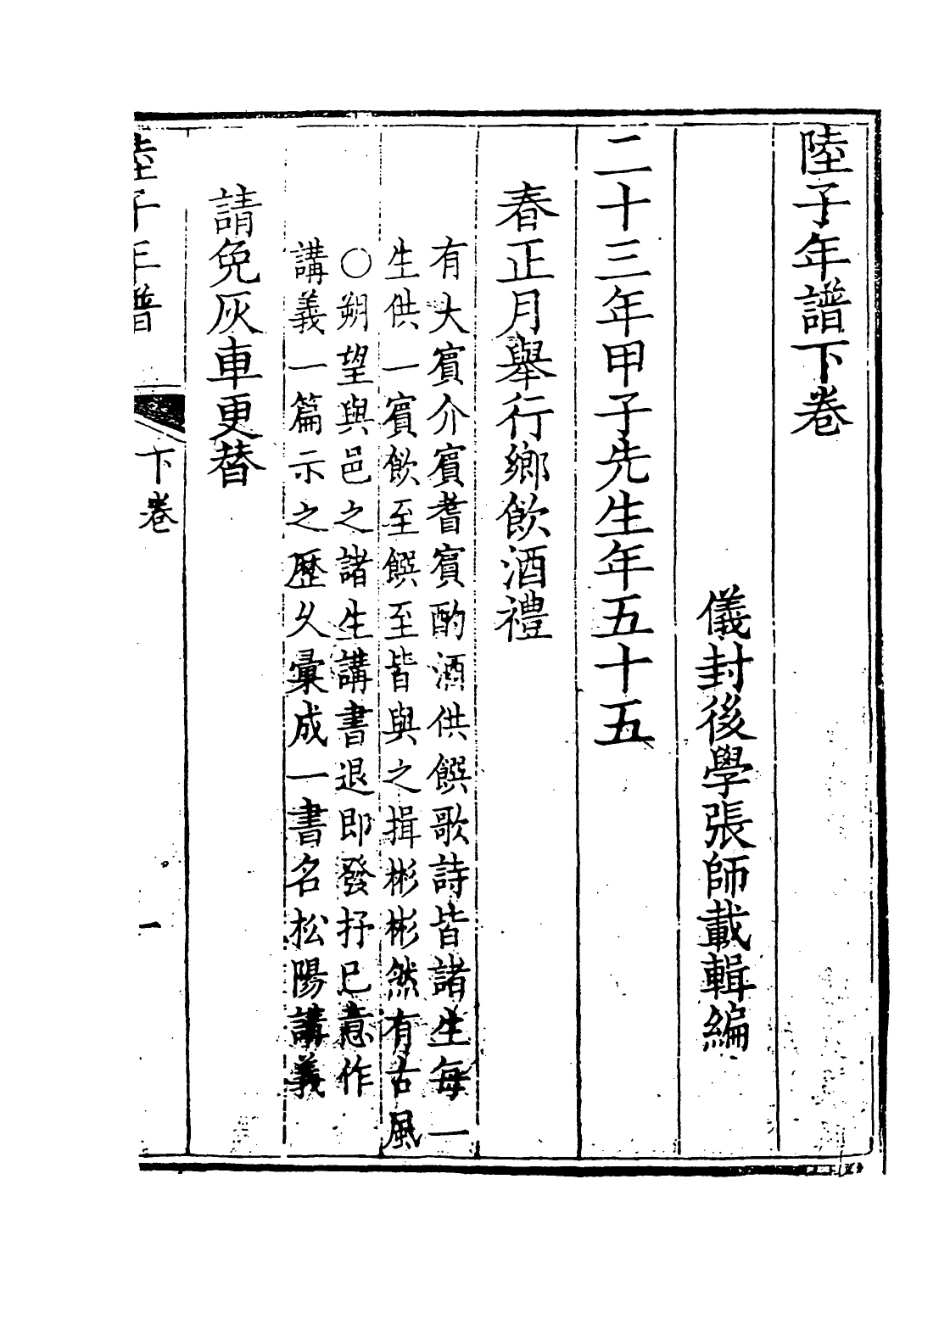 陸子年譜下卷
儀封後學張師載輯編
二十三年甲子先生年五十五
春正月舉行鄉飲酒禮
有大賓介賓耆賓酌酒供饌歌詩皆諸生每一
生供一賓飲至饌至皆與之揖彬彬然有古風
○朔望與邑之諸生講書退即發抒己意作
講義一篇示之歷久彙成一書名松陽講義
請免灰車更替
陸子年譜
下卷
一